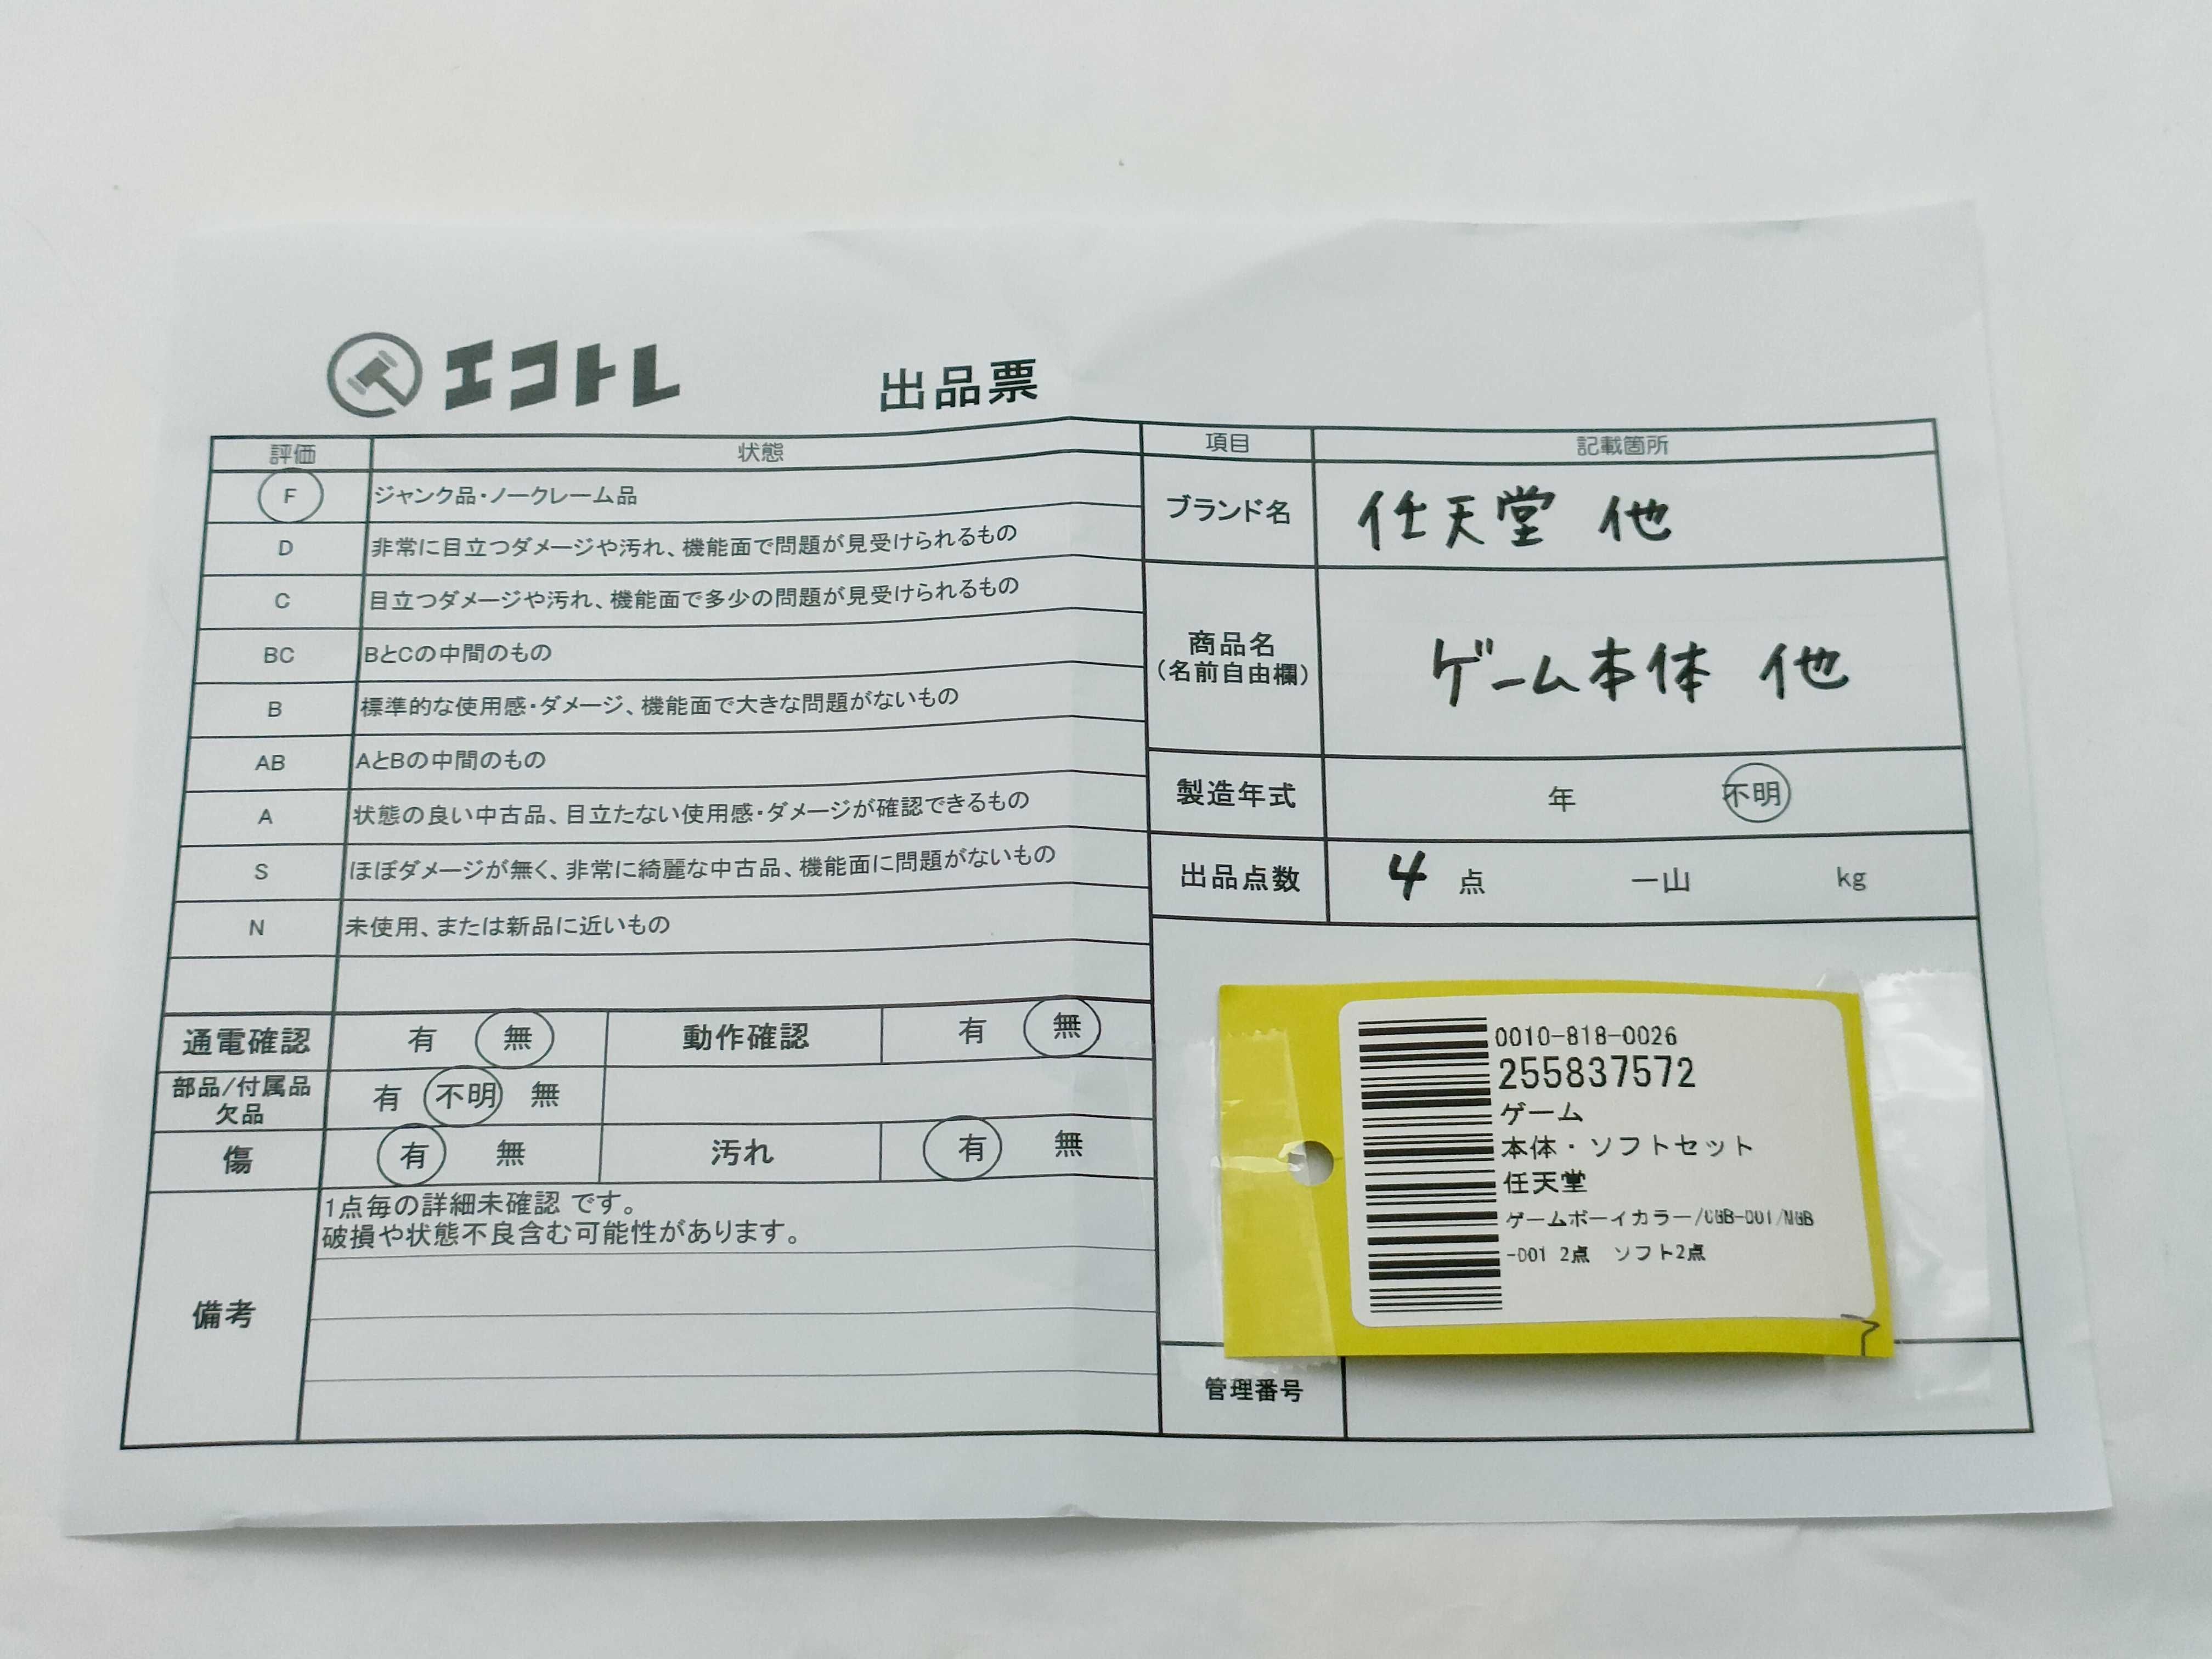 エコトレ 出品票
評価 状態
F ジャンク品・ノークレーム品
D 非常に目立つダメージや汚れ、機能面で問題が見受けられるもの
C 目立つダメージや汚れ、機能面で多少の問題が見受けられるもの
BC BとCの中間のもの
B 標準的な使用感・ダメージ、機能面で大きな問題がないもの
AB AとBの中間のもの
A 状態の良い中古品、目立たない使用感・ダメージが確認できるもの
S ほぼダメージが無く、非常に綺麗な中古品、機能面に問題がないもの
N 未使用、または新品に近いもの
通電確認 有 無 動作確認 有 無
部品/付属品
欠品 有 不明 無
傷 有 無 汚れ 有 無
備考
1点毎の詳細未確認 です。
破損や状態不良含む可能性があります。
項目 記載箇所
ブランド名 任天堂 他
商品名
(名前自由欄)
ゲーム本体 他
製造年式 年 不明
出品点数 4 点 一山 kg
0010-818-0026
255837572
ゲーム
本体・ソフトセット
任天堂
ゲームボーイカラー/CGB-001/MGB
-001 2点 ソフト2点
管理番号